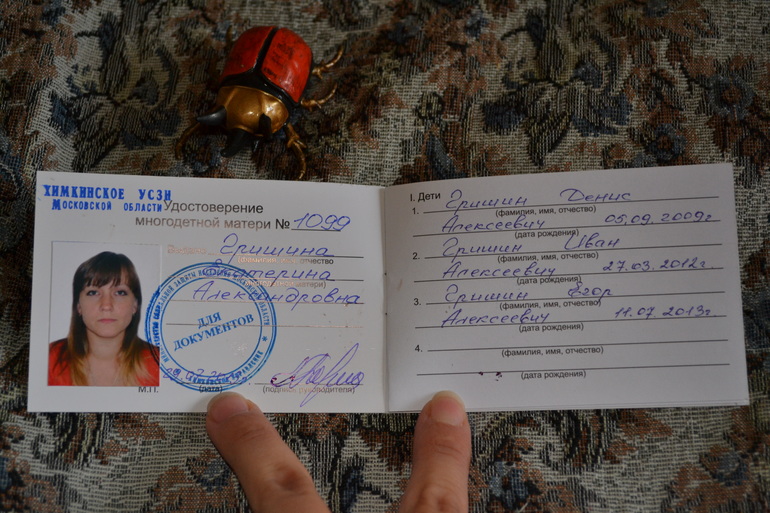 ХИМКИНСКОЕ УСЗН
МОСКОВСКОЙ ОБЛАСТИ
Удостоверение
многодетной матери № 1099
Гришина
(фамилия, имя, отчество
Екатерина
матери)
Александровна
ДЛЯ
ДОКУМЕНТОВ
М.П.
(дата)
(подпись руководителя)
I. Дети
1. Гришин Денис
(фамилия, имя, отчество)
Алексеевич 05.09.2009г
(дата рождения)
2. Гришин Иван
(фамилия, имя, отчество)
Алексеевич 27.03.2012г.
(дата рождения)
3. Гришин Егор
(фамилия, имя, отчество)
Алексеевич 11.07.2013г.
(дата рождения)
4.
(фамилия, имя, отчество)
(дата рождения)